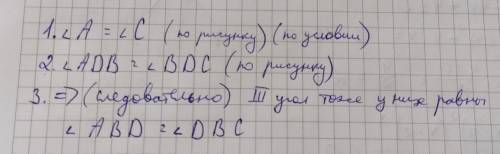 1. ∠A = ∠C (по рисунку) (по условии)
2. ∠ADB = ∠BDC (по рисунку)
3. => (следовательно) III угол тоже у них равны
∠ABD = ∠DBC